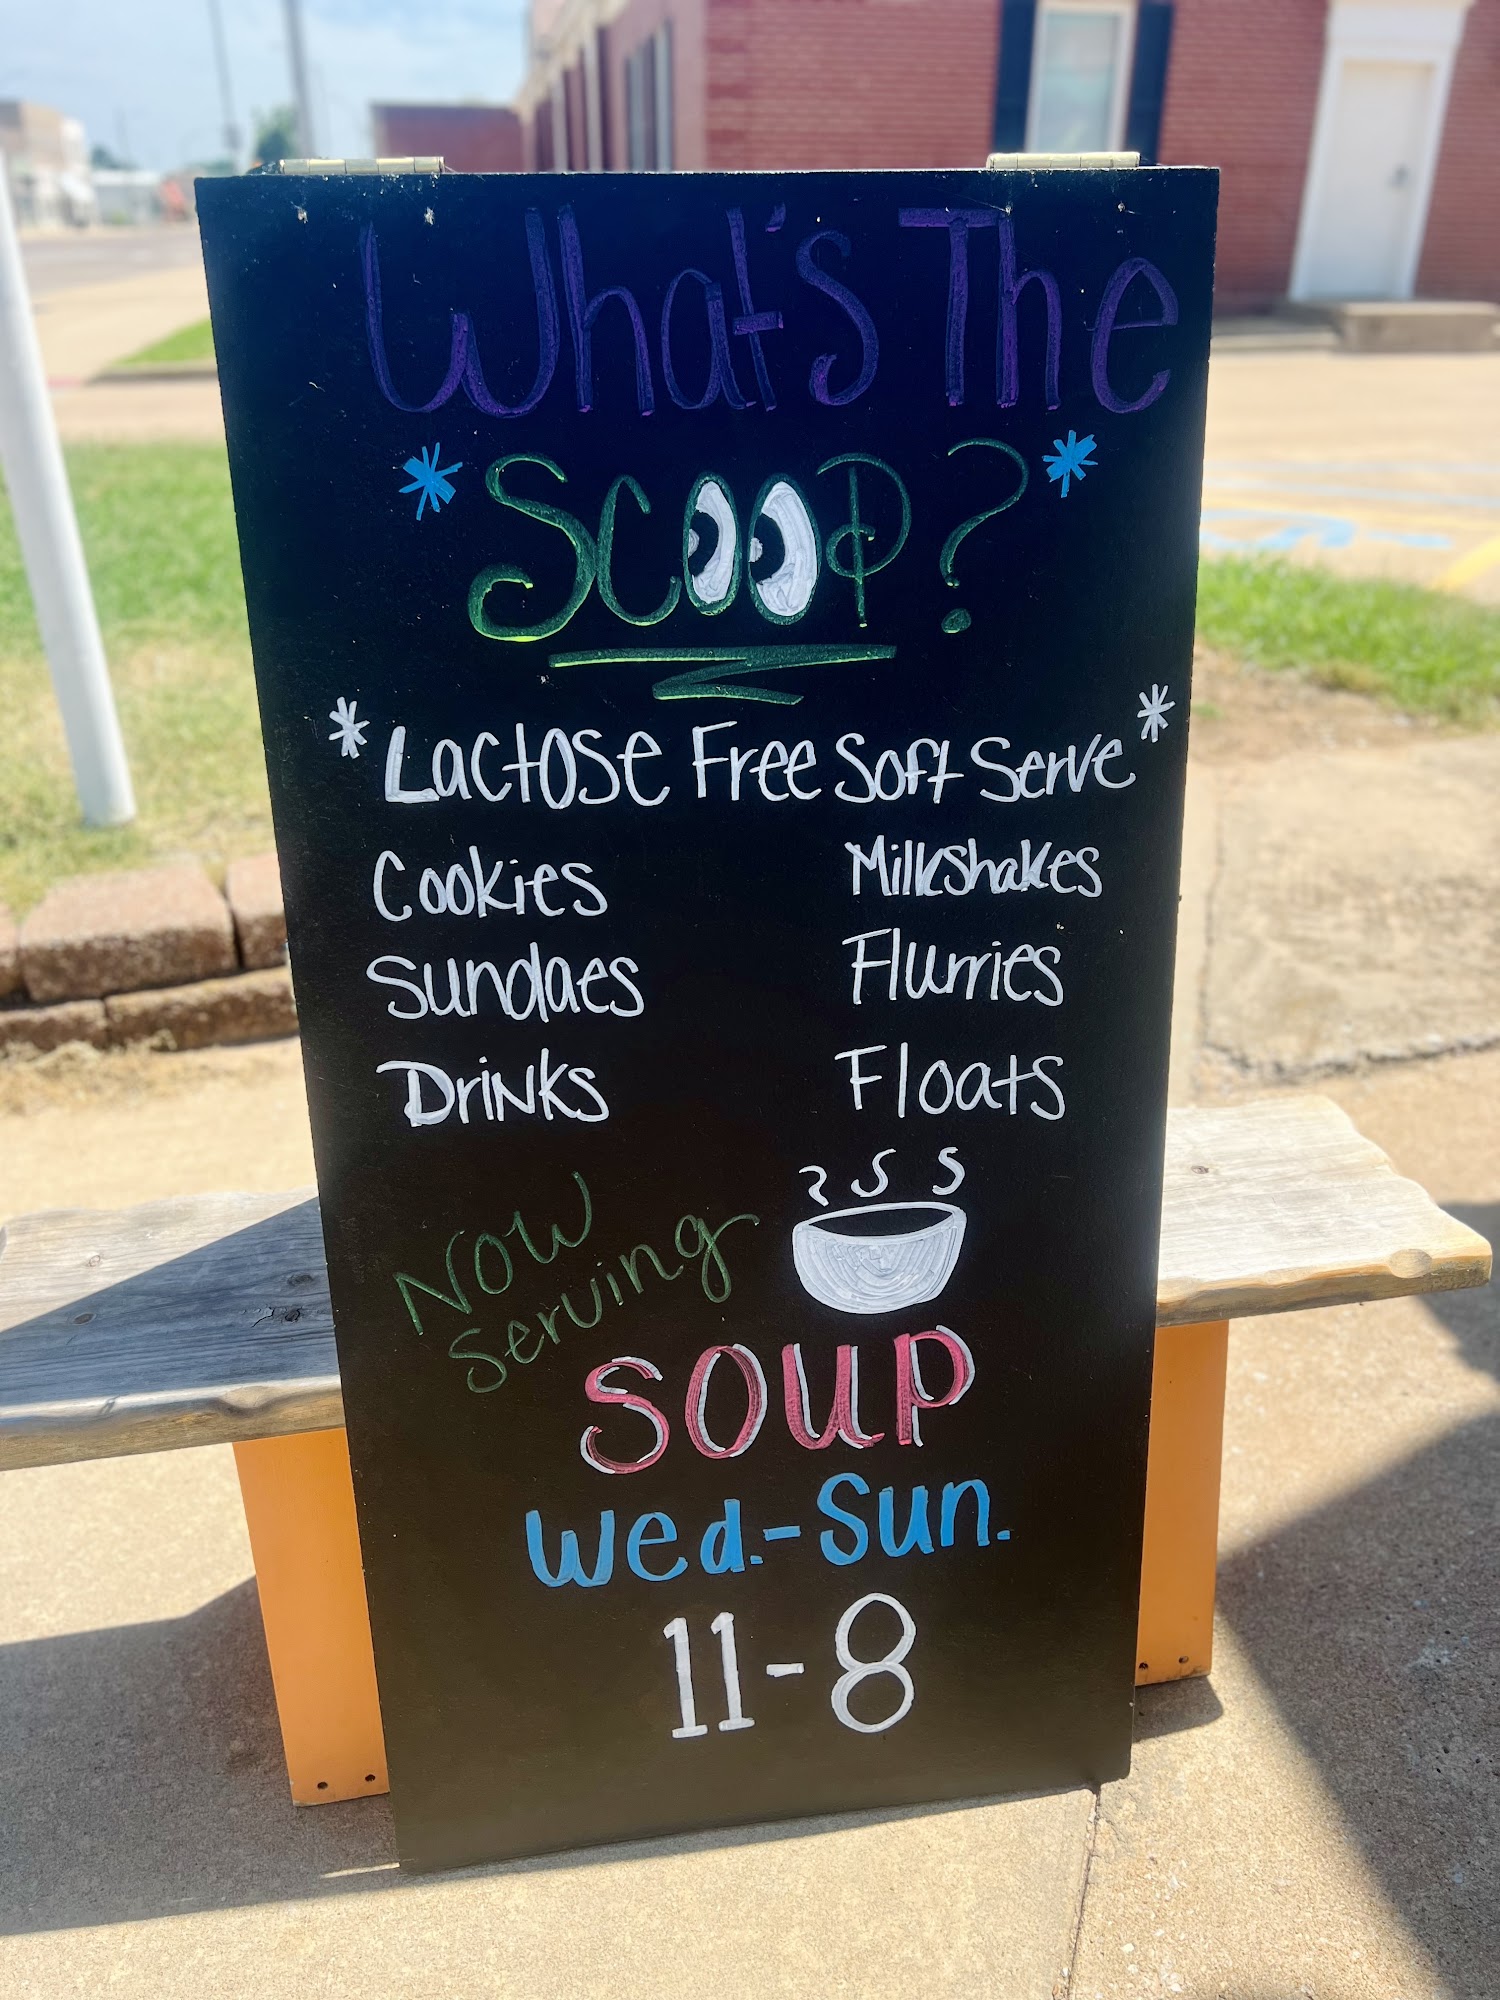 What's The
*SCOOP?*
*Lactose Free Soft Serve*
Cookies
Milkshakes
Sundaes
Flurries
Drinks
Floats
Now
Serving
SOUP
Wed.-Sun.
11-8